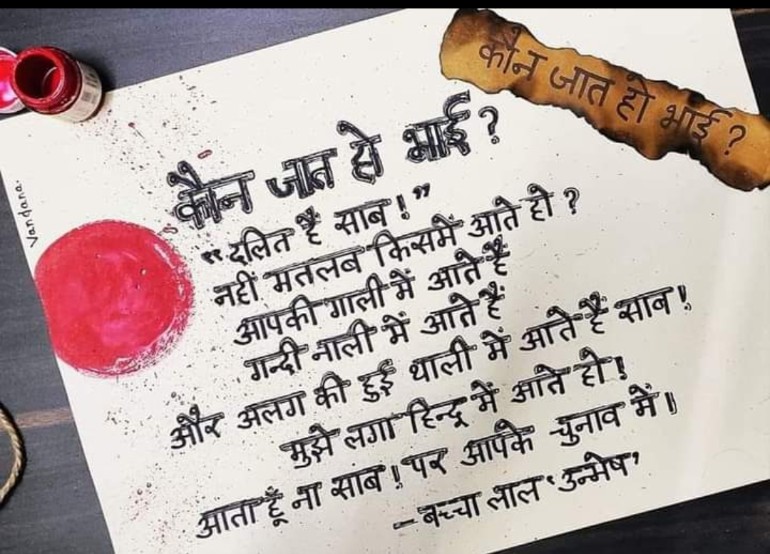 कौन जात हो भाई?
Vandana.
कौन जात हो भाई?
"दलित हैं साब!"
नहीं मतलब किसमें आते हो?
आपकी गाली में आते हैं
गन्दी नाली में आते हैं
और अलग की हुई थाली में आते हैं साब!
मुझे लगा हिन्दू में आते हो!
आता हूँ ना साब! पर आपके चुनाव में।
- बच्चा लाल 'उन्मेष'